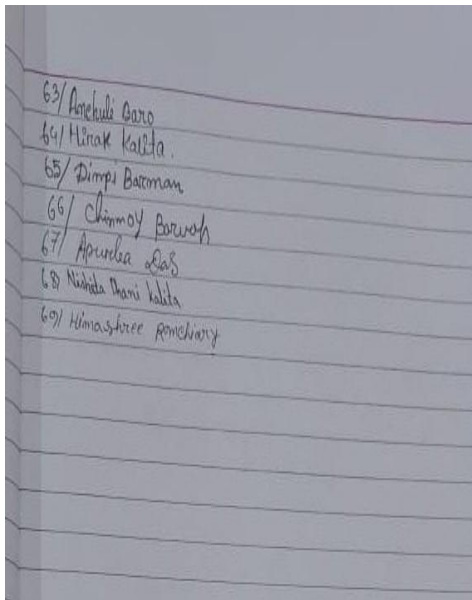 63/ Anehuli Baro
64/ Hirak Kalita.
65/ Dimpi Barman
66/ Chinmoy Baruah
67/ Apurba Das
68) Nishita Kalita
69/ Himashree Ramchiary